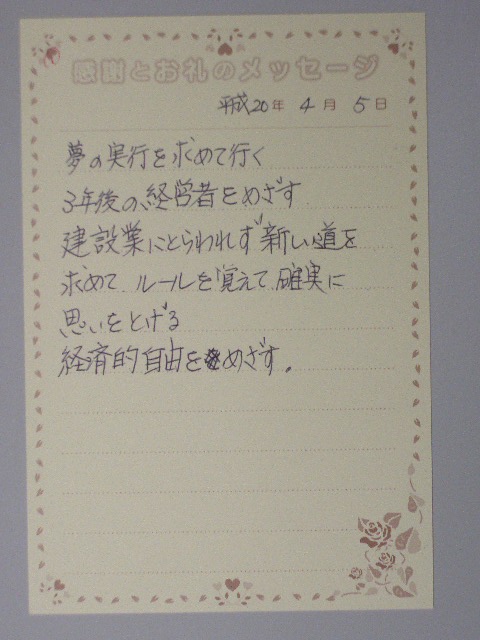 感謝とお礼のメッセージ
平成20年 4月 5日
夢の実行を求めて行く
3年後の、経営者をめざす
建設業にとらわれず新しい道を
求めて、ルールを覚えて確実に
思いをとげる
経済的自由をめざす。